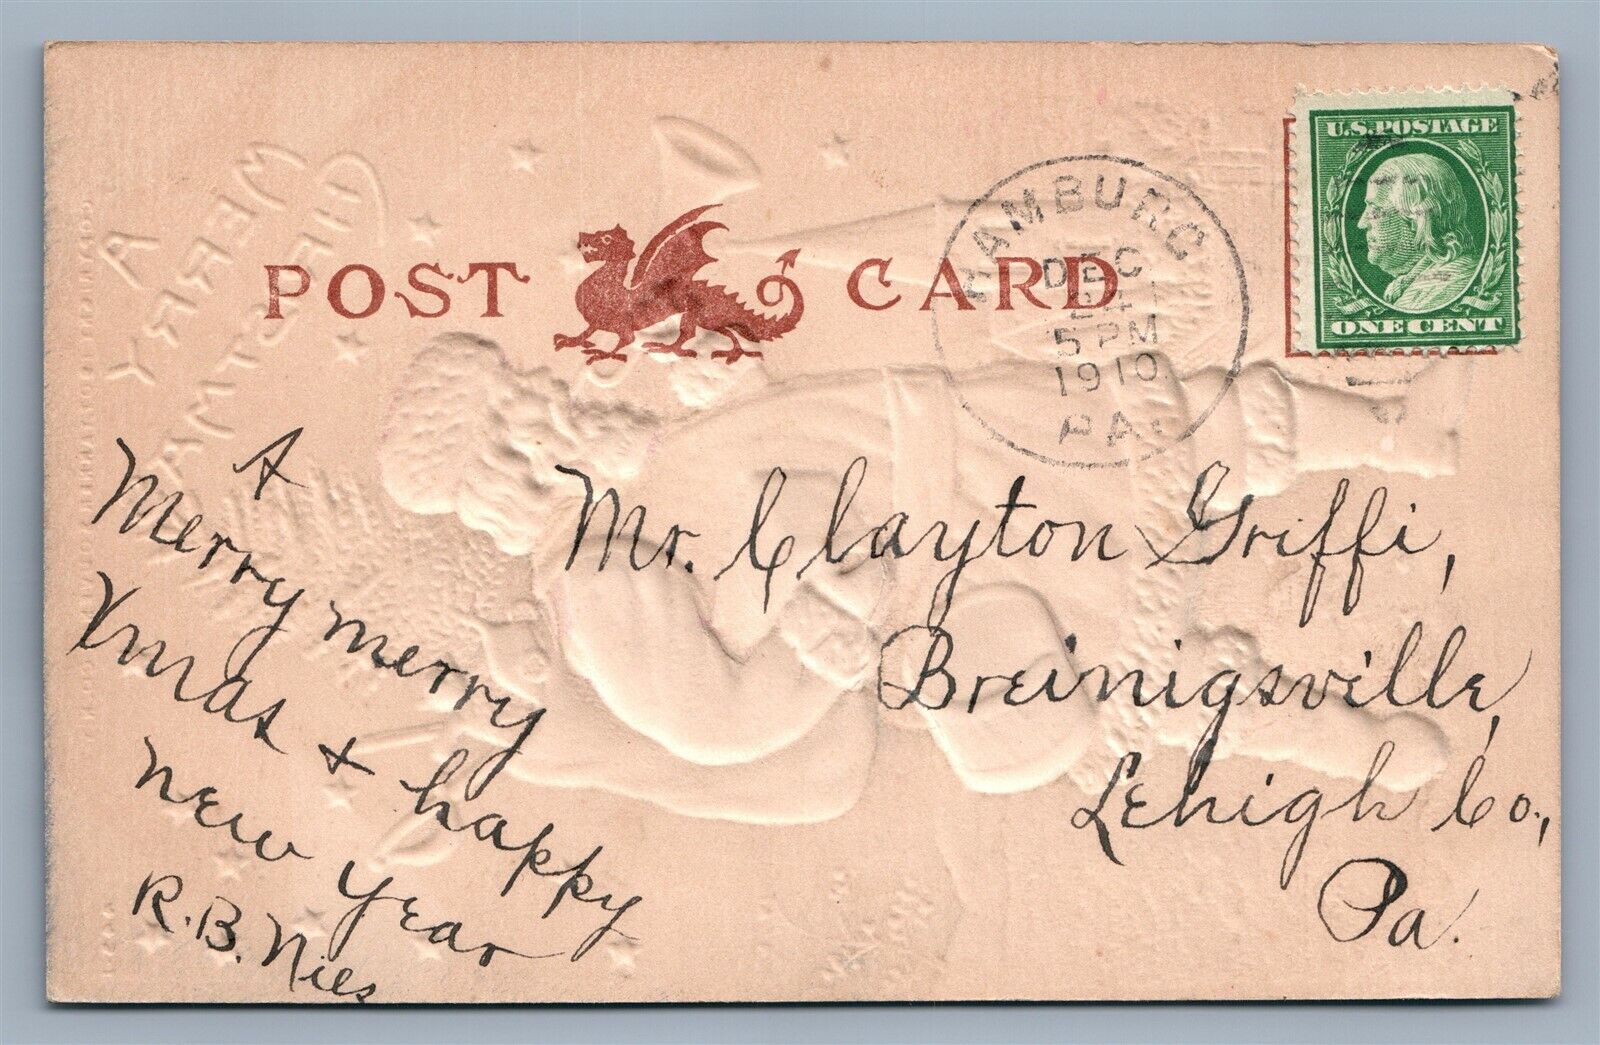 POST CARD
U.S. POSTAGE
ONE CENT
HAMBURG
DEC
24
5 PM
1910
PA.
A
Merry merry
Xmas & happy
New Year
R. B. Nies
Mr. Clayton Griffi,
Breinigsville,
Lehigh Co.,
Pa.
A
MERRY
CHRISTMAS